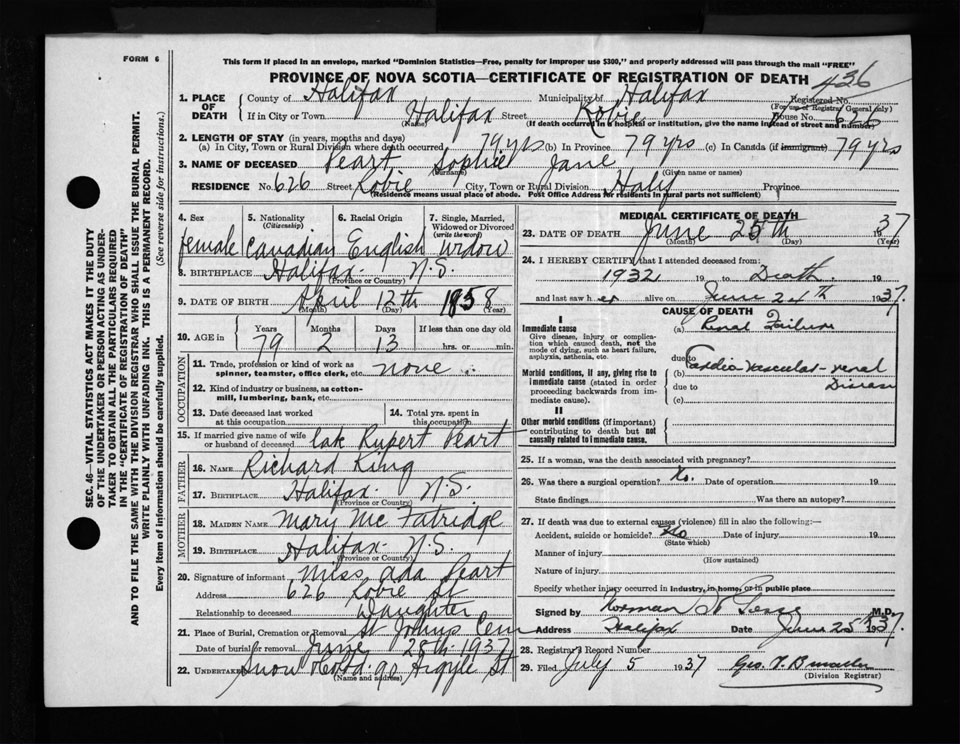 FORM 6
This form if placed in an envelope, marked "Dominion Statistics—Free, penalty for improper use $300," and properly addressed will pass through the mail "FREE"
PROVINCE OF NOVA SCOTIA—CERTIFICATE OF REGISTRATION OF DEATH
436
Registered No.
(For use of Registrar General only)
1. PLACE OF DEATH County of Halifax Municipality of Halifax
If in City or Town Halifax Street Robie House No. 626
(Name) (If death occurred in a hospital or institution, give the name instead of street and number)
2. LENGTH OF STAY (in years, months and days)
(a) In City, Town or Rural Division where death occurred 79 yrs (b) In Province 79 yrs (c) In Canada (if immigrant) 79 yrs
3. NAME OF DECEASED Peart Sophie Jane
(Surname) (Given name or names)
RESIDENCE No. 626 Street Robie City, Town or Rural Division Halif Province
(Residence means usual place of abode. Post Office Address for residents in rural parts not sufficient)
4. Sex female
5. Nationality (Citizenship) Canadian
6. Racial Origin English
7. Single, Married, Widowed or Divorced (write the word) Widow
8. BIRTHPLACE Halifax - N.S.
(Province or Country)
9. DATE OF BIRTH April 12th 1858
(Month) (Day) (Year)
10. AGE in Years 79 Months 2 Days 13 If less than one day old hrs. or min.
OCCUPATION
11. Trade, profession or kind of work as spinner, teamster, office clerk, etc. none
12. Kind of industry or business, as cotton-mill, lumbering, bank, etc.
13. Date deceased last worked at this occupation
14. Total yrs. spent in this occupation
15. If married give name of wife or husband of deceased late Rupert Peart
FATHER
16. NAME Richard King
17. BIRTHPLACE Halifax - N.S.
(Province or Country)
MOTHER
18. MAIDEN NAME Mary Mc Fatridge
19. BIRTHPLACE Halifax - N.S.
(Province or Country)
20. Signature of informant Miss Ada Peart
Address 626 Robie St
Relationship to deceased Daughter
21. Place of Burial, Cremation or Removal St Johns Cem
Date of burial or removal June 28th 1937
22. Undertaker Snow & Co. Ltd. 90 Argyle St
(Name and address)
MEDICAL CERTIFICATE OF DEATH
23. DATE OF DEATH June 25th 1937
(Month) (Day) (Year)
24. I HEREBY CERTIFY that I attended deceased from:
1932 19 to Death 19
and last saw her alive on June 24th 1937.
CAUSE OF DEATH
I
Immediate cause
Give disease, injury, or complication which caused death, not the mode of dying, such as heart failure, asphyxia, asthenia, etc.
(a) Renal Failure
due to
Morbid conditions, if any, giving rise to immediate cause (stated in order proceeding backwards from immediate cause).
(b) Cardio-Vascular-renal Disease
due to
(c)
II
Other morbid conditions (if important) contributing to death but not causally related to immediate cause.
25. If a woman, was the death associated with pregnancy?
26. Was there a surgical operation? No. Date of operation 19
State findings Was there an autopsy?
27. If death was due to external causes (violence) fill in also the following:—
Accident, suicide or homicide? No Date of injury 19
(State which)
Manner of injury
(How sustained)
Nature of injury
Specify whether injury occurred in industry, in home, or in public place
Signed by Norman M.D.
Address Halifax Date June 25th 1937.
28. Registrar's Record Number
29. Filed July 5 1937 Geo.
(Division Registrar)
SEC. 46—VITAL STATISTICS ACT MAKES IT THE DUTY
OF THE UNDERTAKER OR PERSON ACTING AS UNDER-
TAKER TO OBTAIN ALL THE PARTICULARS REQUIRED
IN THE "CERTIFICATE OF REGISTRATION OF DEATH"
AND TO FILE THE SAME WITH THE DIVISION REGISTRAR WHO SHALL ISSUE THE BURIAL PERMIT.
WRITE PLAINLY WITH UNFADING INK. THIS IS A PERMANENT RECORD.
Every item of information should be carefully supplied. (See reverse side for instructions.)